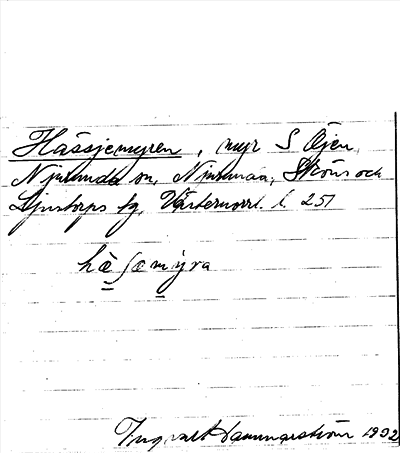 Hässjemyren, myr S Öjen,
Njurunda sn, Njurunda, Sköns och
Ljustorps tg, Västernorrl. l. 251
hæʃæmỳra
Ingvalt Hammarström 1932